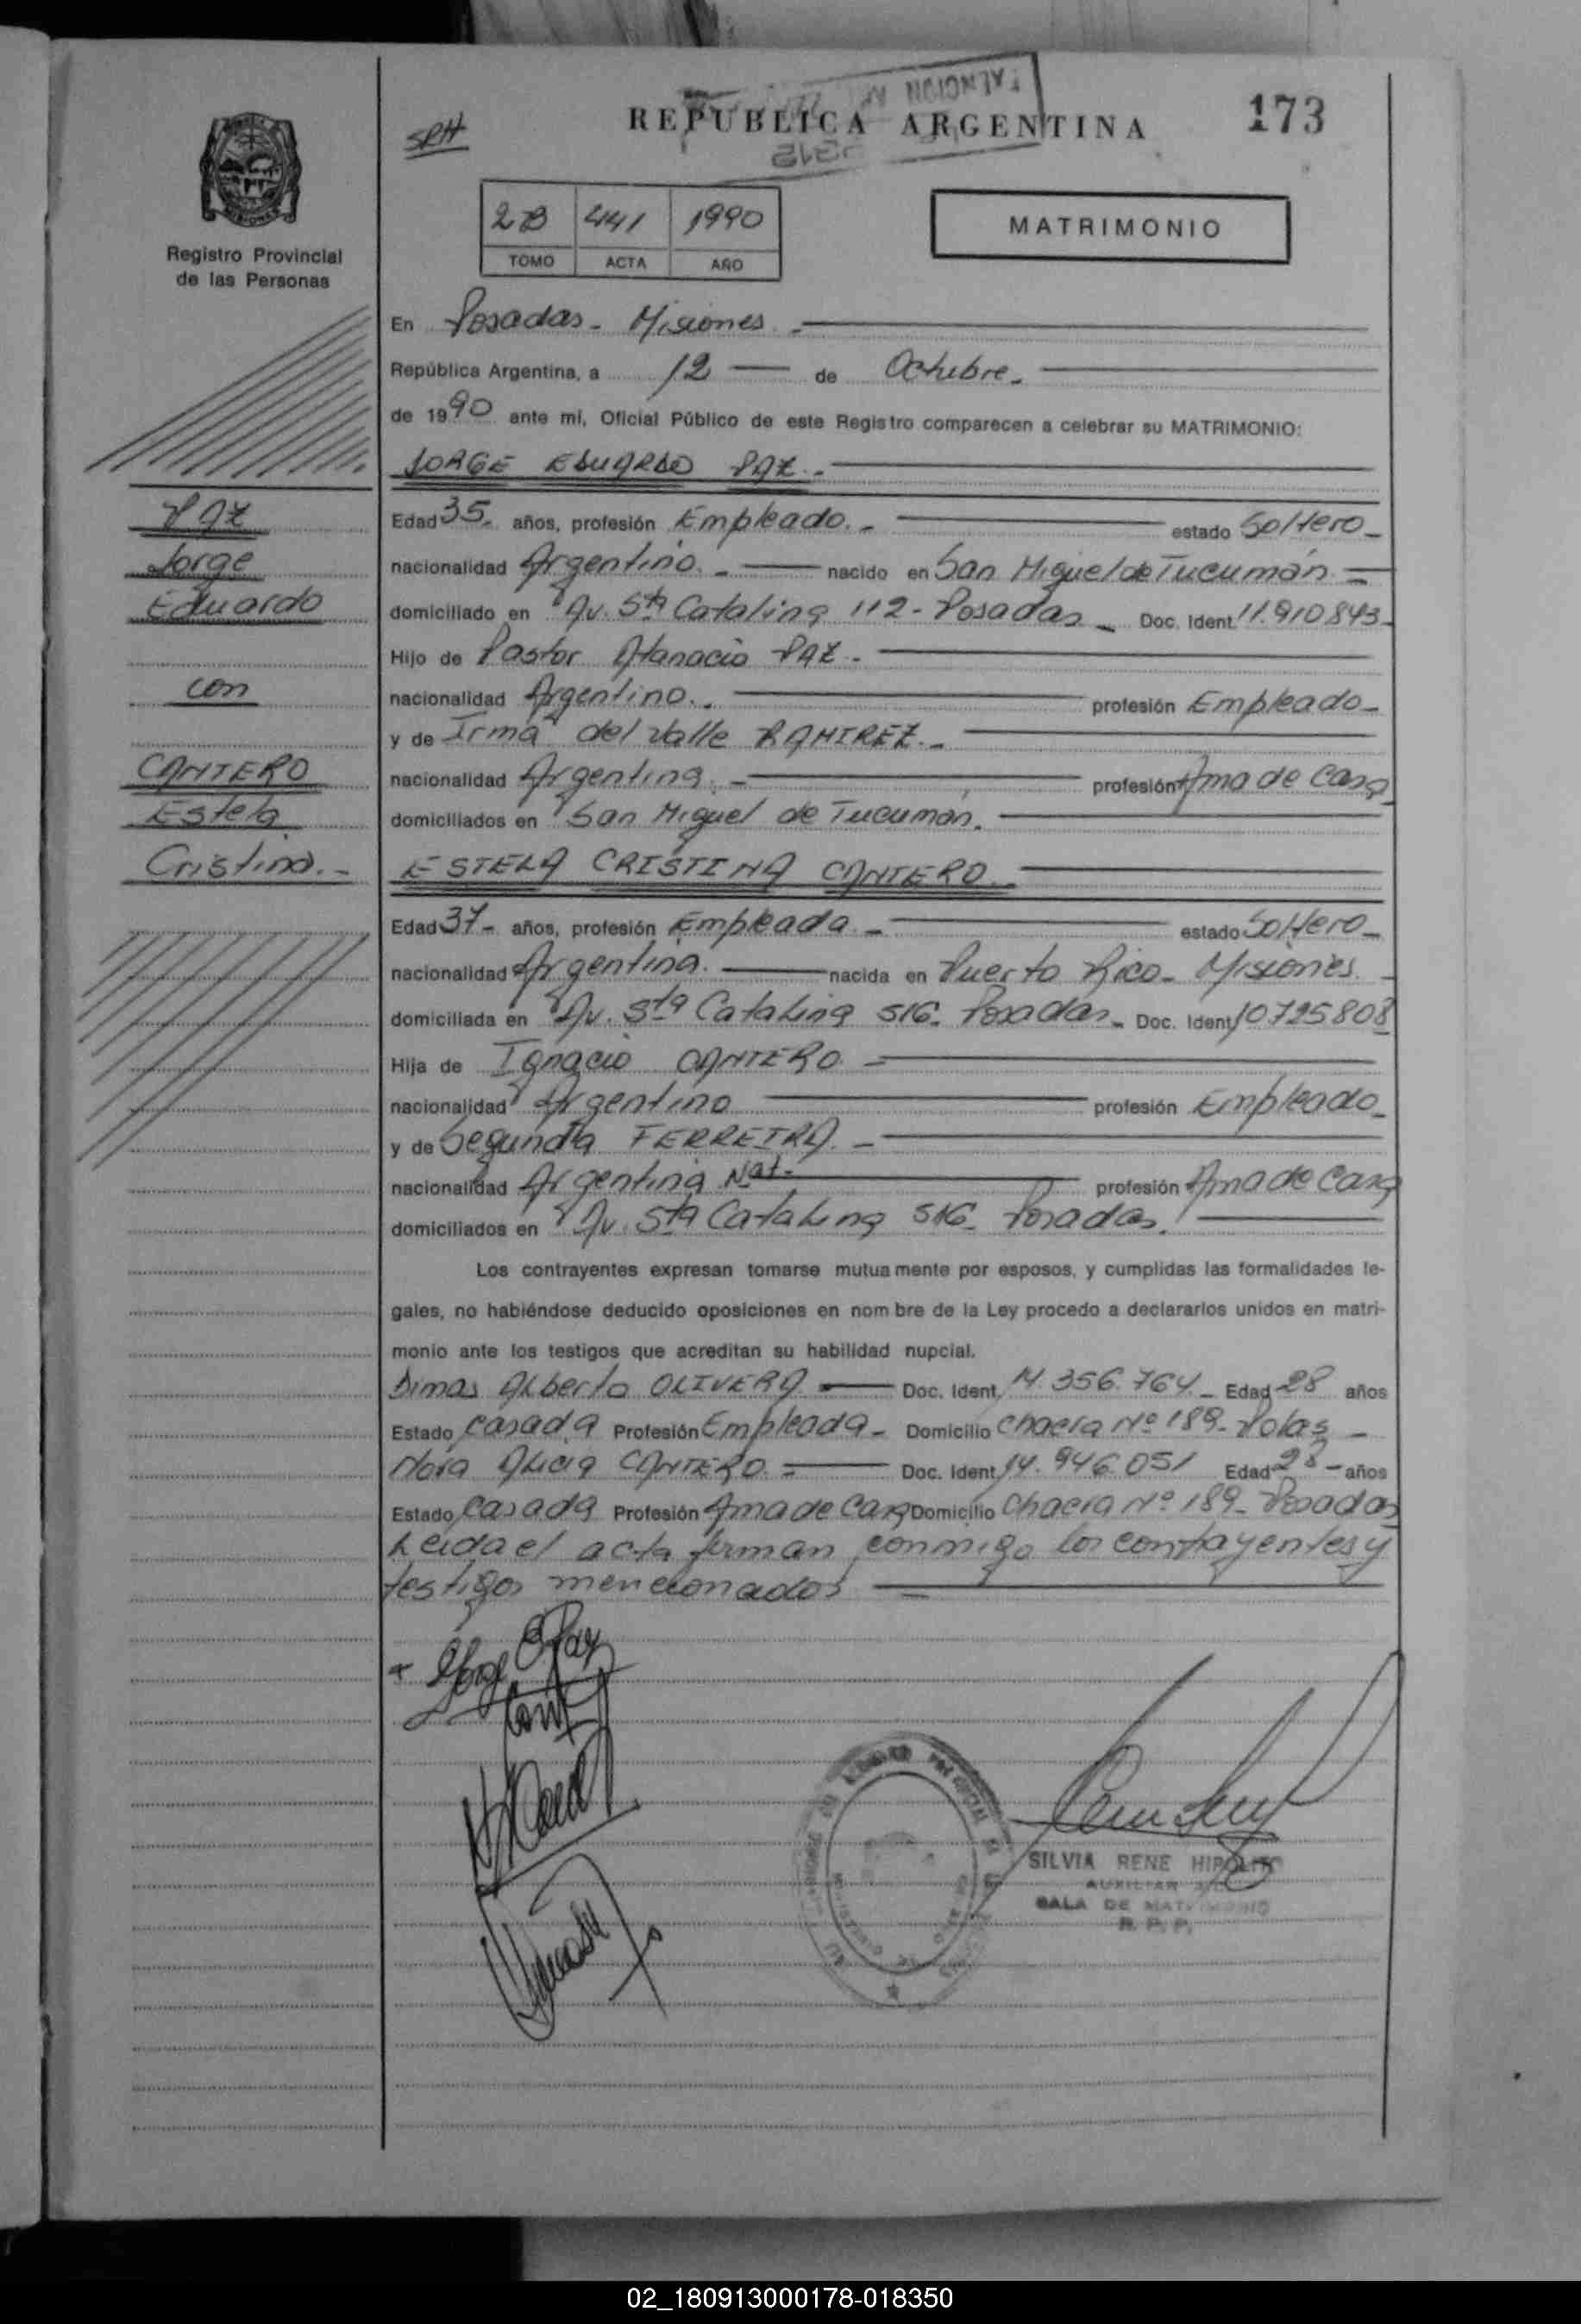 173
SRH
REPUBLICA ARGENTINA
2B 441 1990
TOMO ACTA AÑO
MATRIMONIO
Registro Provincial
de las Personas
En Posadas - Misiones -
República Argentina, a 12 — de Octubre.
de 1990 ante mi, Oficial Público de este Registro comparecen a celebrar su MATRIMONIO:
JORGE EDUARDO PAZ.-
PAZ
Jorge
Eduardo
con
CANTERO
Estela
Cristina.-
Edad 35. años, profesión Empleado. - estado Soltero -
nacionalidad Argentino. - nacido en San Miguel de Tucumán -
domiciliado en Av. Sta Catalina 112 - Posadas - Doc. Ident. 11.910843-
Hijo de Pastor Atanacio PAZ -
nacionalidad Argentino. - profesión Empleado -
y de Irma del Valle RAMIREZ. -
nacionalidad Argentina. - profesión Ama de Casa
domiciliados en San Miguel de Tucumán.
ESTELA CRISTINA CANTERO. -
Edad 37- años, profesión Empleada. - estado Soltero -
nacionalidad Argentina. — nacida en Puerto Rico - Misiones. -
domiciliada en Av. Sta Catalina S/C. Posadas - Doc. Ident. 10725808
Hija de Ignacio CANTERO -
nacionalidad Argentino profesión Empleado -
y de Segunda FERREIRA. -
nacionalidad Argentina Nat. - profesión Ama de Casa
domiciliados en Av. Sta Catalina S/C - Posadas.
Los contrayentes expresan tomarse mutuamente por esposos, y cumplidas las formalidades le-
gales, no habiéndose deducido oposiciones en nombre de la Ley procedo a declararlos unidos en matri-
monio ante los testigos que acreditan su habilidad nupcial.
Dimas Alberto OLIVERA — Doc. Ident. 14.356.764 - Edad 28 años
Estado Casada Profesión Empleada - Domicilio Chacra Nº 189 - Pdas -
Nora Alicia CANTERO - Doc. Ident. 14.946.051 Edad 28 - años
Estado Casada Profesión Ama de Casa Domicilio Chacra Nº 189 - Posadas
Leida el acta firman conmigo los contrayentes y
testigos mencionados —
SILVIA RENE HIPOLITO
AUXILIAR
SALA DE MATRIMONIO
R. P. P.
02_180913000178-018350